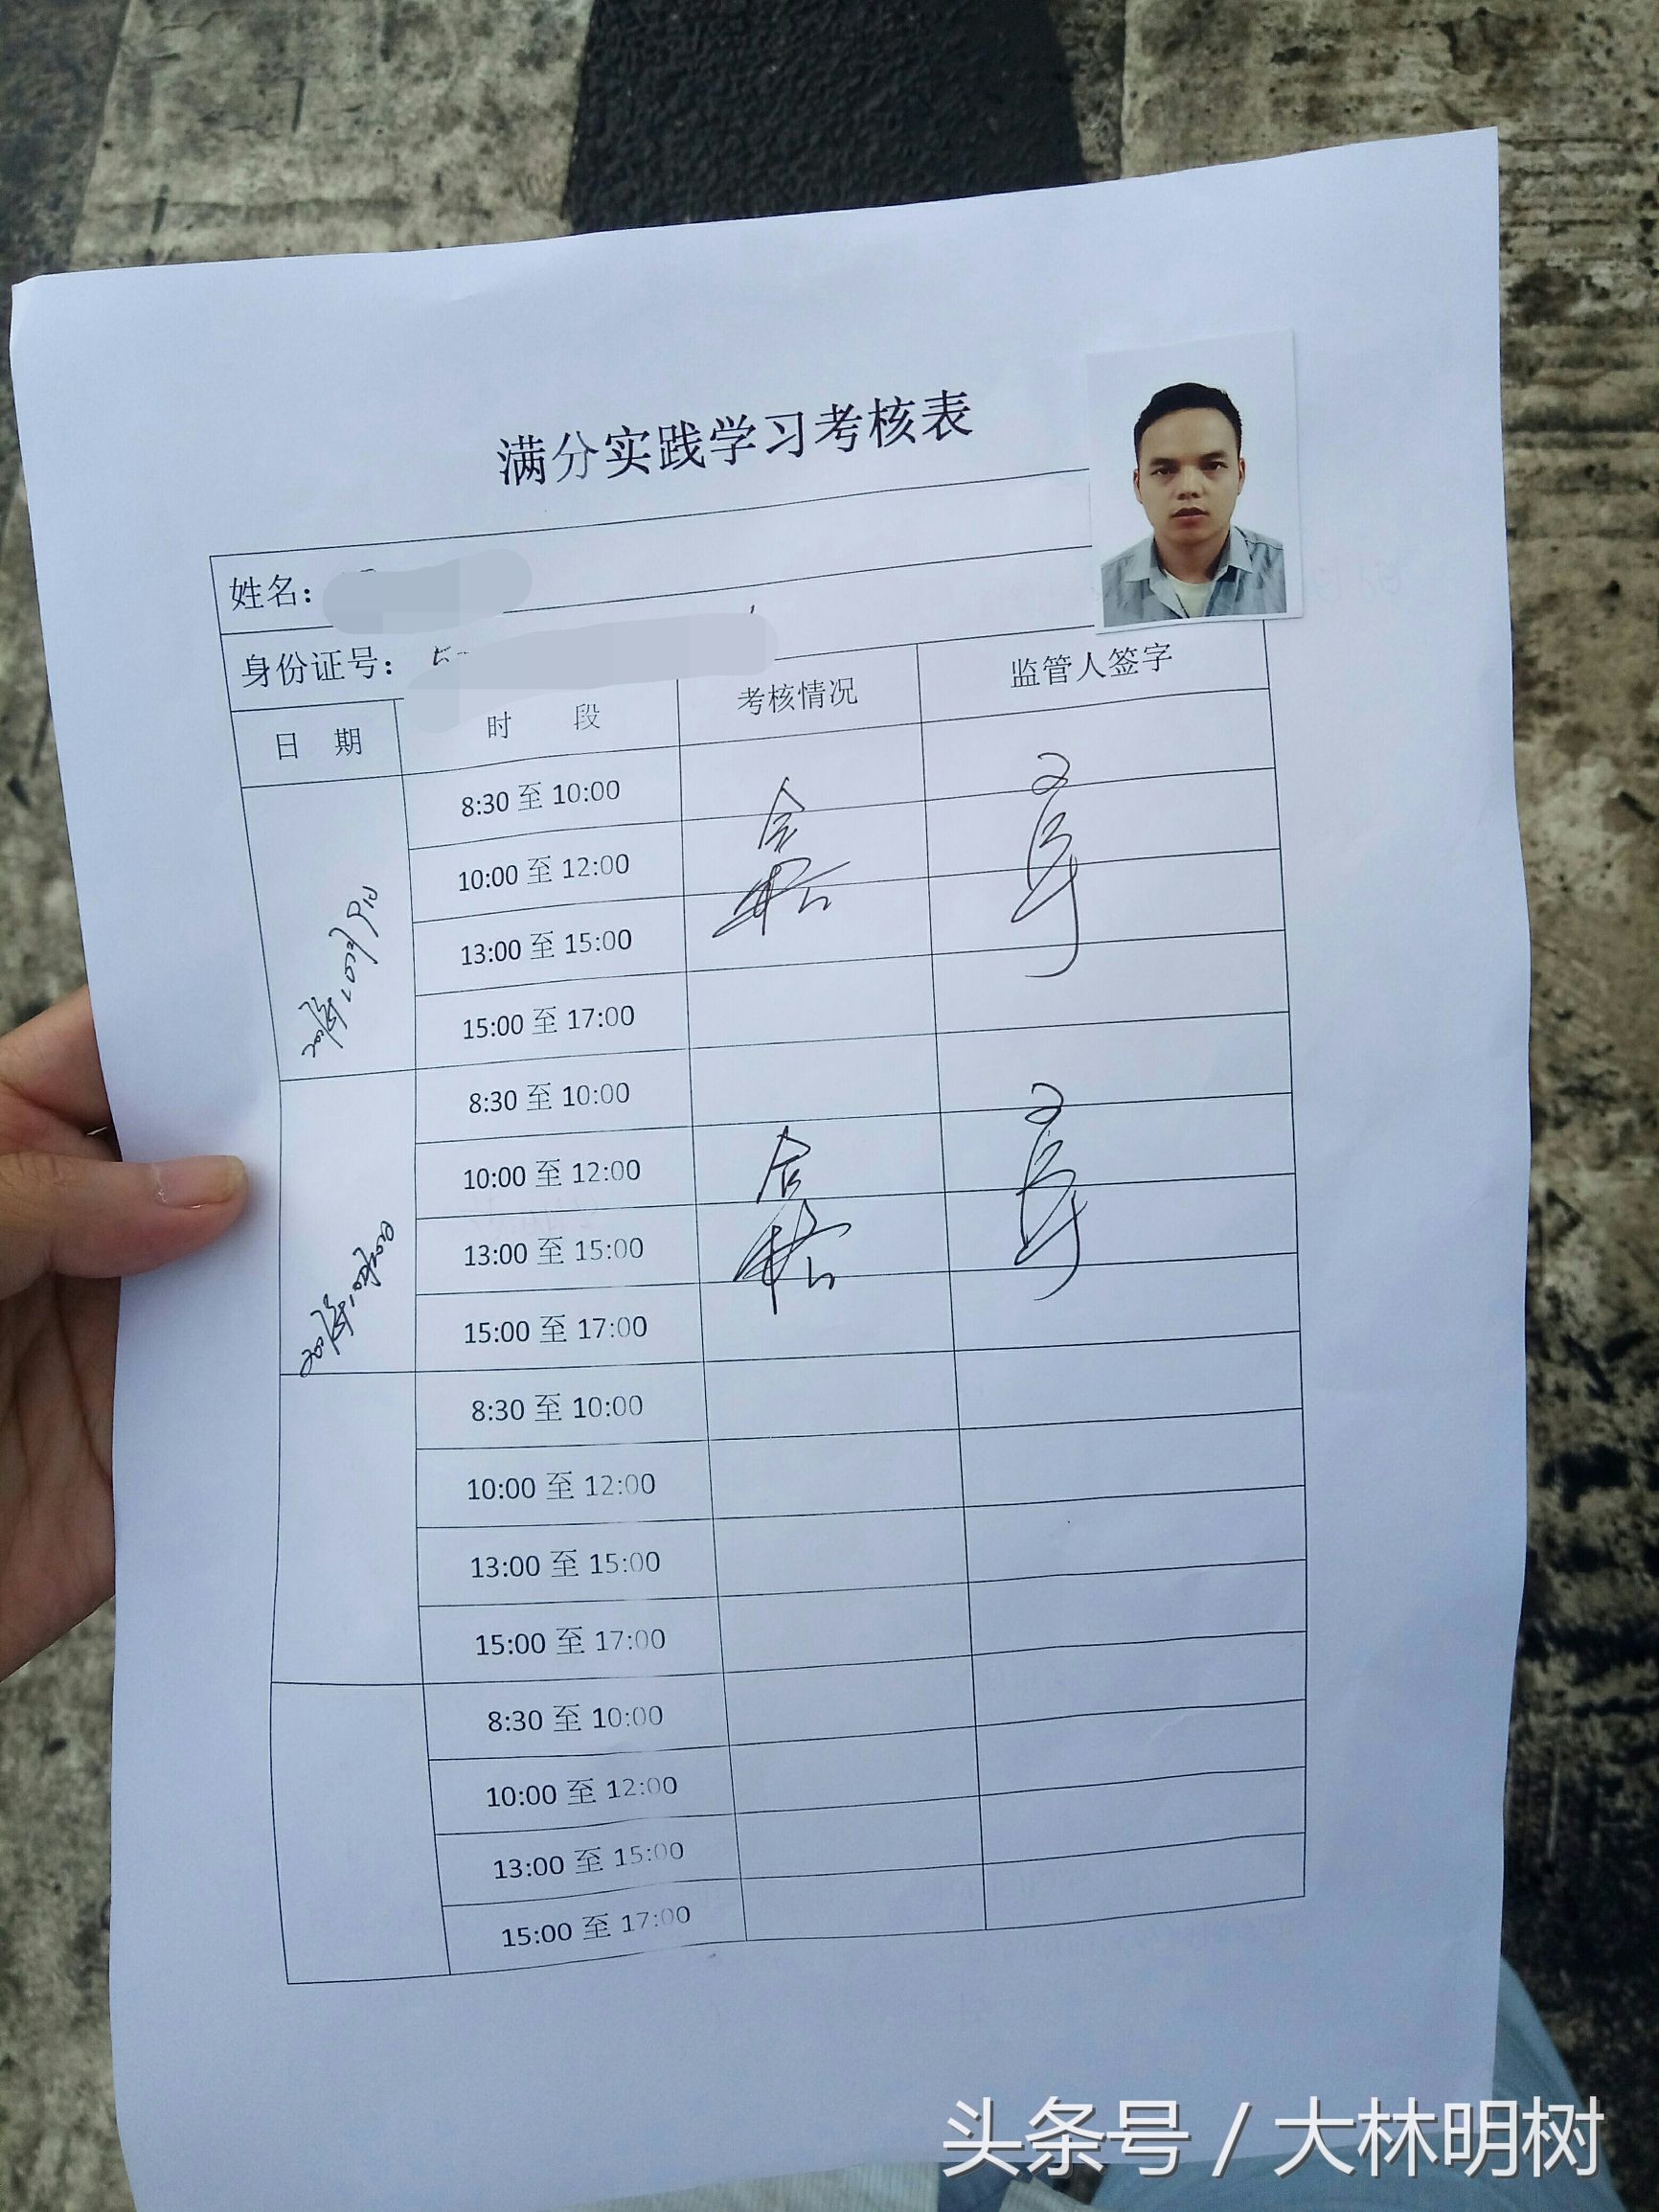 满分实践学习考核表
姓名：
身份证号：
日 期 时 段 考核情况 监管人签字
8:30 至 10:00
10:00 至 12:00
13:00 至 15:00
15:00 至 17:00
合格
8:30 至 10:00
10:00 至 12:00
13:00 至 15:00
15:00 至 17:00
合格
8:30 至 10:00
10:00 至 12:00
13:00 至 15:00
15:00 至 17:00
8:30 至 10:00
10:00 至 12:00
13:00 至 15:00
15:00 至 17:00
头条号 / 大林明树